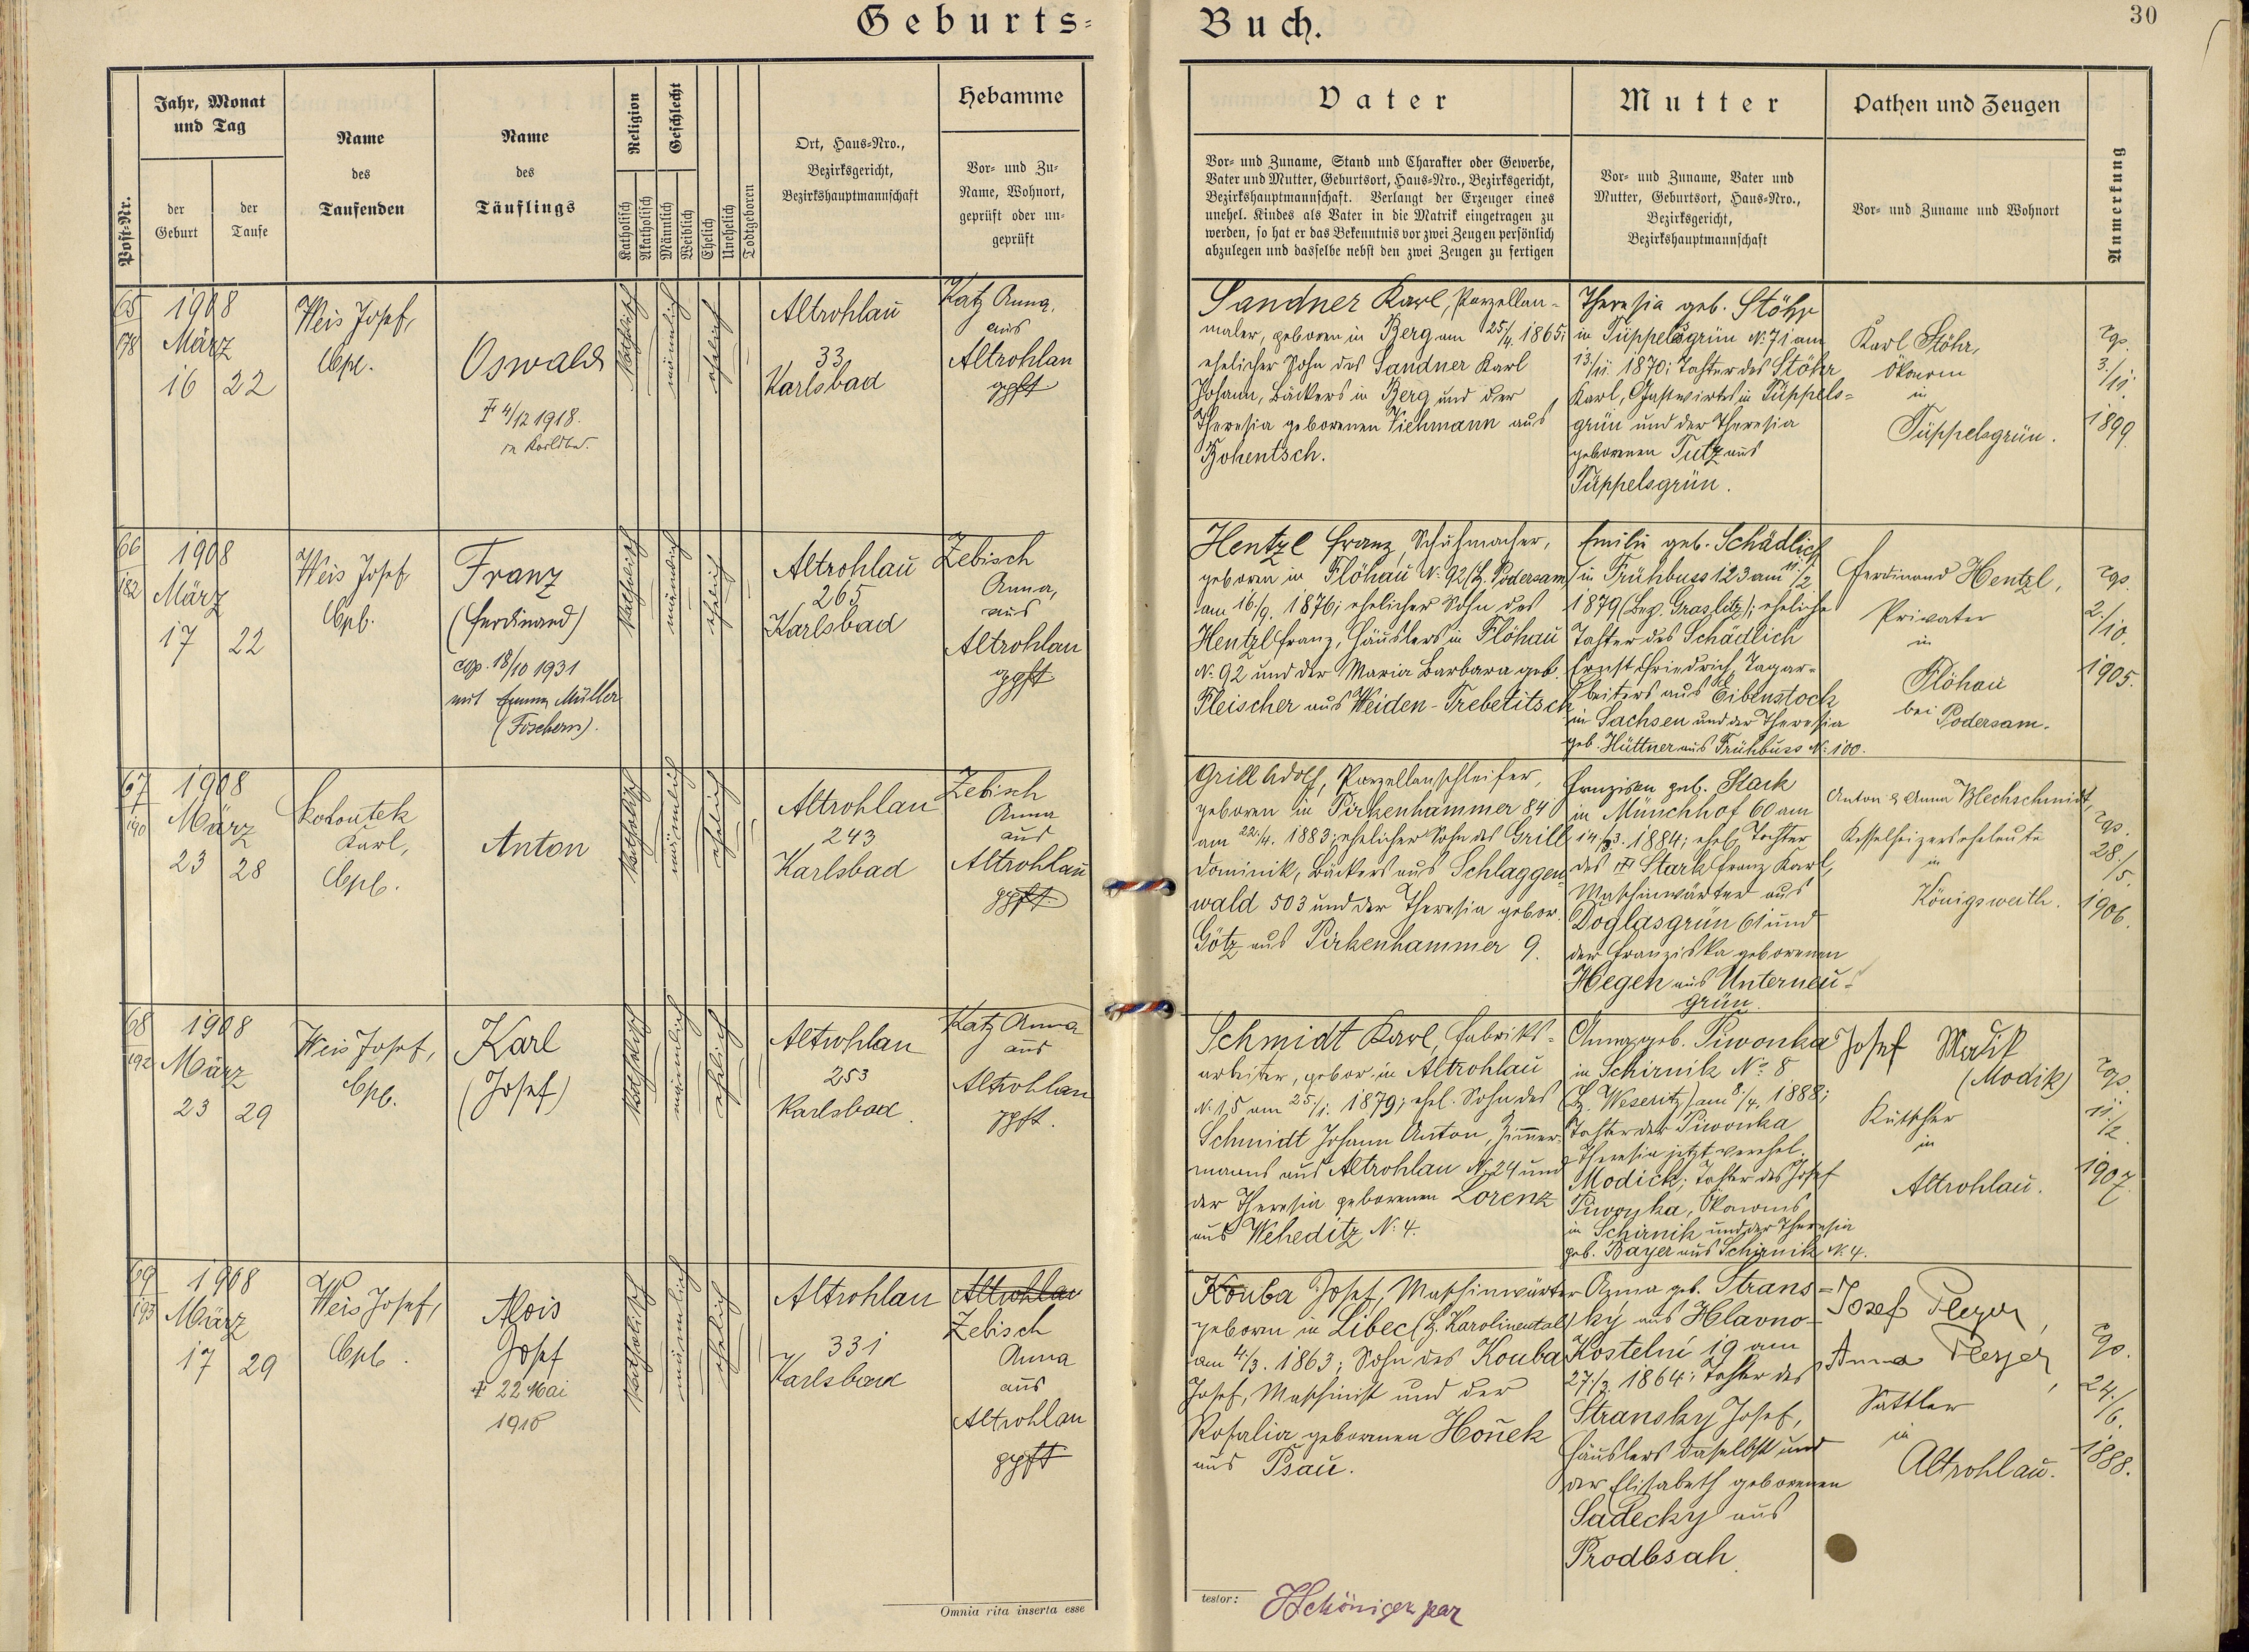 Geburts-
Buch.
30
Post-Nr.
Jahr, Monat
und Tag
der
Geburt
der
Taufe
Name
des
Taufenden
Name
des
Täuflings
Religion
Katholisch
Akatholisch
Geschlecht
Männlich
Weiblich
Ehelich
Unehelich
Todtgeboren
Ort, Haus-Nro.,
Bezirksgericht,
Bezirkshauptmannschaft
Hebamme
Vor- und Zu-
Name, Wohnort,
geprüft oder un-
geprüft
Vater
Vor- und Zuname, Stand und Charakter oder Gewerbe,
Vater und Mutter, Geburtsort, Haus-Nro., Bezirksgericht,
Bezirkshauptmannschaft. Verlangt der Erzeuger eines
unehel. Kindes als Vater in die Matrik eingetragen zu
werden, so hat er das Bekenntnis vor zwei Zeugen persönlich
abzulegen und dasselbe nebst den zwei Zeugen zu fertigen
Mutter
Vor- und Zuname, Vater und
Mutter, Geburtsort, Haus-Nro.,
Bezirksgericht,
Bezirkshauptmannschaft
Pathen und Zeugen
Vor- und Zuname und Wohnort
Anmerkung
65
178
1908
März
16 22
Weis Josef,
Cpl.
Oswald
‡ 4/12 1918.
in Karlsbad.
Katholisch
männlich
ehelich
Altrohlau
33
Karlsbad
Katz Anna,
aus
Altrohlau
gpft
Sandner Karl, Porzellan-
maler, geboren in Berg am 25/4. 1865;
ehelicher Sohn des Sandner Karl
Johann, Bäckers in Berg und der
Theresia geborenen Viehmann aus
Bohentsch.
Theresia geb. Stöhr
in Tüppelsgrün No 71 am
13/11. 1870; Tochter des Stöhr
Karl, Gastwirtes in Tüppels-
grün und der Theresia
geborenen Tutz aus
Tüppelsgrün.
Karl Stöhr,
Ökonom
in
Tüppelsgrün.
3./11.
1899.
66
182
1908
März
17 22
Weis Josef
Cpl.
Franz
(Ferdinand)
cop. 18/10 1931
mit Emma Müller
(Fischern).
Katholisch
männlich
ehelich
Altrohlau
265
Karlsbad
Zebisch
Anna,
aus
Altrohlau
gpft
Hentzl Franz, Schuhmacher,
geboren in Flöhau No 92 (Bz. Podersam)
am 16./9. 1876; ehelicher Sohn des
Hentzl Franz, Häuslers in Flöhau
No 92 und der Maria Barbara geb.
Fleischer aus Weiden-Trebetitsch
Emilie geb. Schädlich
in Frühbuss 123 am 11./2
1879 (Bez. Graslitz); eheliche
Tochter des Schädlich
Ernst Friedrich, Tagar-
beiters aus Eibenstock
in Sachsen und der Theresia
geb. Hüttner aus Frühbuss No 100.
Ferdinand Hentzl,
Privater
in
Flöhau
bei Podersam.
2./10.
1905.
67
190
1908
März
23 28
Kohoutek
Karl,
Cpl.
Anton
Katholisch
männlich
ehelich
Altrohlau
243
Karlsbad
Zebisch
Anna
aus
Altrohlau
gpft
Grill Adolf, Porzellanschleifer,
geboren in Pirkenhammer 84
am 22./4. 1883; ehelicher Sohn des Grill
Dominik, Bäckers aus Schlaggen-
wald 503 und der Theresia gebor.
Götz aus Pirkenhammer 9.
Franziska geb. Stark
in Münchhof 60 am
14./3. 1884; ehel. Tochter
des ‡ Stark Franz Karl,
Maschinwärter aus
Doglasgrün 61 und
der Franziska geborenen
Hegen aus Unterneu-
grün.
Anton & Anna Blechschmidt,
Kesselheizerseheleute
in
Königswerth.
28./5.
1906.
68
192
1908
März
23 29
Weis Josef,
Cpl.
Karl
(Josef)
Katholisch
männlich
ehelich
Altrohlau
253
Karlsbad
Katz Anna
aus
Altrohlau
gpft.
Schmidt Karl, Fabriks-
arbeiter, gebor. in Altrohlau
No 15 am 25./1. 1879; ehel. Sohn des
Schmidt Johann Anton, Zimmer-
manns aus Altrohlau No 24 und
der Theresia geborenen Lorenz
aus Weheditz No 4.
Anna geb. Piwonka
in Schirnik No 8
(Bz. Weseritz) am 8./4. 1888;
Tochter der Piwonka
Theresia jetzt verehel.
Modick; Tochter des Josef
Piwonka, Ökonoms
in Schirnik und der Theresia
geb. Bayer aus Schirnik No 4.
Josef Modik
(Modik)
Kutscher
in
Altrohlau.
11./2.
1907.
69
193
1908
März
17 29
Weis Josef,
Cpl.
Alois
Josef
‡ 22 Mai
1910
Katholisch
männlich
ehelich
Altrohlau
331
Karlsbad
Altrohlau
Zebisch
Anna
aus
Altrohlau
gpft
Kouba Josef, Maschinwärter
geboren in Libeč (Bz. Karolinental)
am 4./3. 1863; Sohn des Kouba
Josef, Maschinist und der
Rosalia geborenen
aus Psau.
Anna geb. Strans-
ky aus Hlavno-
Kostelní 19 am
1864; Tochter des
Stransky Josef,
Häuslers daselbst und
der Elisabeth geborenen
Sadecky aus
Josef
Anna
Sattler
in
Altrohlau.
24./6.
1888.
Omnia rita inserta esse
testor: